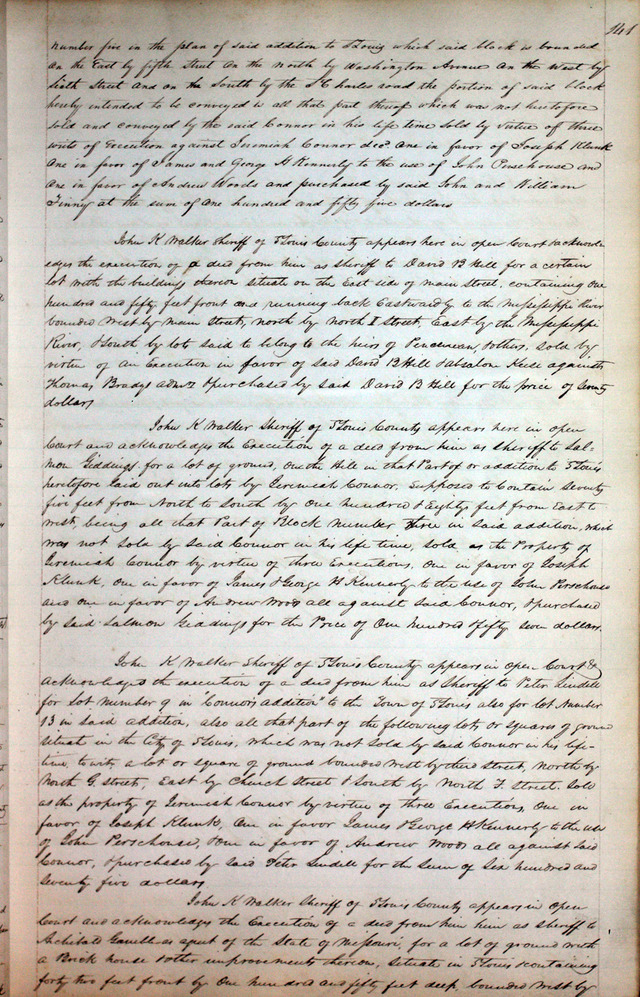 141
number five in the plan of said addition to St Louis which said block is bounded
on the East by fifth street on the North by Washington Avenue on the West by
Sixth Street and on the South by the St Charles road the portion of said block
hereby intended to be conveyed is all that part thereof which was not heretofore
sold and conveyed by the said Connor in his life time sold by virtue of three
writs of Execution against Jeremiah Connor decd. one in favor of Joseph Klunk
one in favor of James and George H Kennerly to the use of John Perschouse and
one in favor of Andrew Woods and purchased by said John and William
Finney at the sum of one hundred and fifty five dollars
John K Walker Sheriff of St Louis County appears here in open Court & acknow-
edges the execution of a deed from him as sheriff to David B Hill for a certain
lot with the buildings thereon situate on the East side of main street, containing one
hundred and fifty feet front and running back Eastwardly to the Mississippi River
bounded West by main Street, north by North I Street, East by the Mississippi
River, & South by lots said to belong to the heirs of & others. Sold by
virtue of an Execution in favor of said David B Hill & Absalon against
Thomas Bradys admr & purchased by said David B Hill for the price of Seventy
dollars
John K Walker Sheriff of St Louis County appears here in open
Court and acknowledges the Execution of a deed from him as Sheriff to Sal-
mon Giddings for a lot of ground, on the Hill in that Part of or addition to St Louis
heretofore laid out into lots by Jeremiah Connor, Supposed to Contain Seventy
five feet from North to South by One hundred & Eighty feet from East to
west, being all that Part of Block Number three in said addition, which
was not sold by said Connor in his life time, sold as the Property of
Jeremiah Connor by virtue of three Executions, One in favor of Joseph
Klunk, One in favor of James & George H Kennerly to the use of John Perschouse
and one in favor of Andrew Woods all against said Connor, & purchased
by said Salmon Giddings for the Price of One Hundred & fifty Seven dollars.
John K Walker Sheriff of St Louis County appears in open Court &
acknowledges the execution of a deed from him as Sheriff to Peter Lindell
for Lot Number 9 in "Connors addition" to the Town of St Louis also for lot Number
13 in said addition, also all that part of the following lots or squares of ground
situate in the City of St Louis, which was not sold by said Connor in his life-
time, to wit, a lot or square of ground bounded West by third Street, North by
North G. street, East by Church Street & South by North F. Street. Sold
as the property of Jeremiah Connor by virtue of three Executions, One in
favor of Joseph Klunk, One in favor James & George H Kennerly to the use
of John Perschouse, & One in favor of Andrew Woods all against said
Connor, & purchased by said Peter Lindell for the Sum of Six hundred and
Seventy five dollars
John K Walker Sheriff of St Louis County appears in open
Court and acknowledges the Execution of a deed from him him as sheriff to
Archibald Gamble as agent of the State of Missouri, for a lot of ground with
a Brick house & other improvements thereon, Situate in St Louis & containing
forty two feet front by One hundred and fifty feet deep, bounded West by